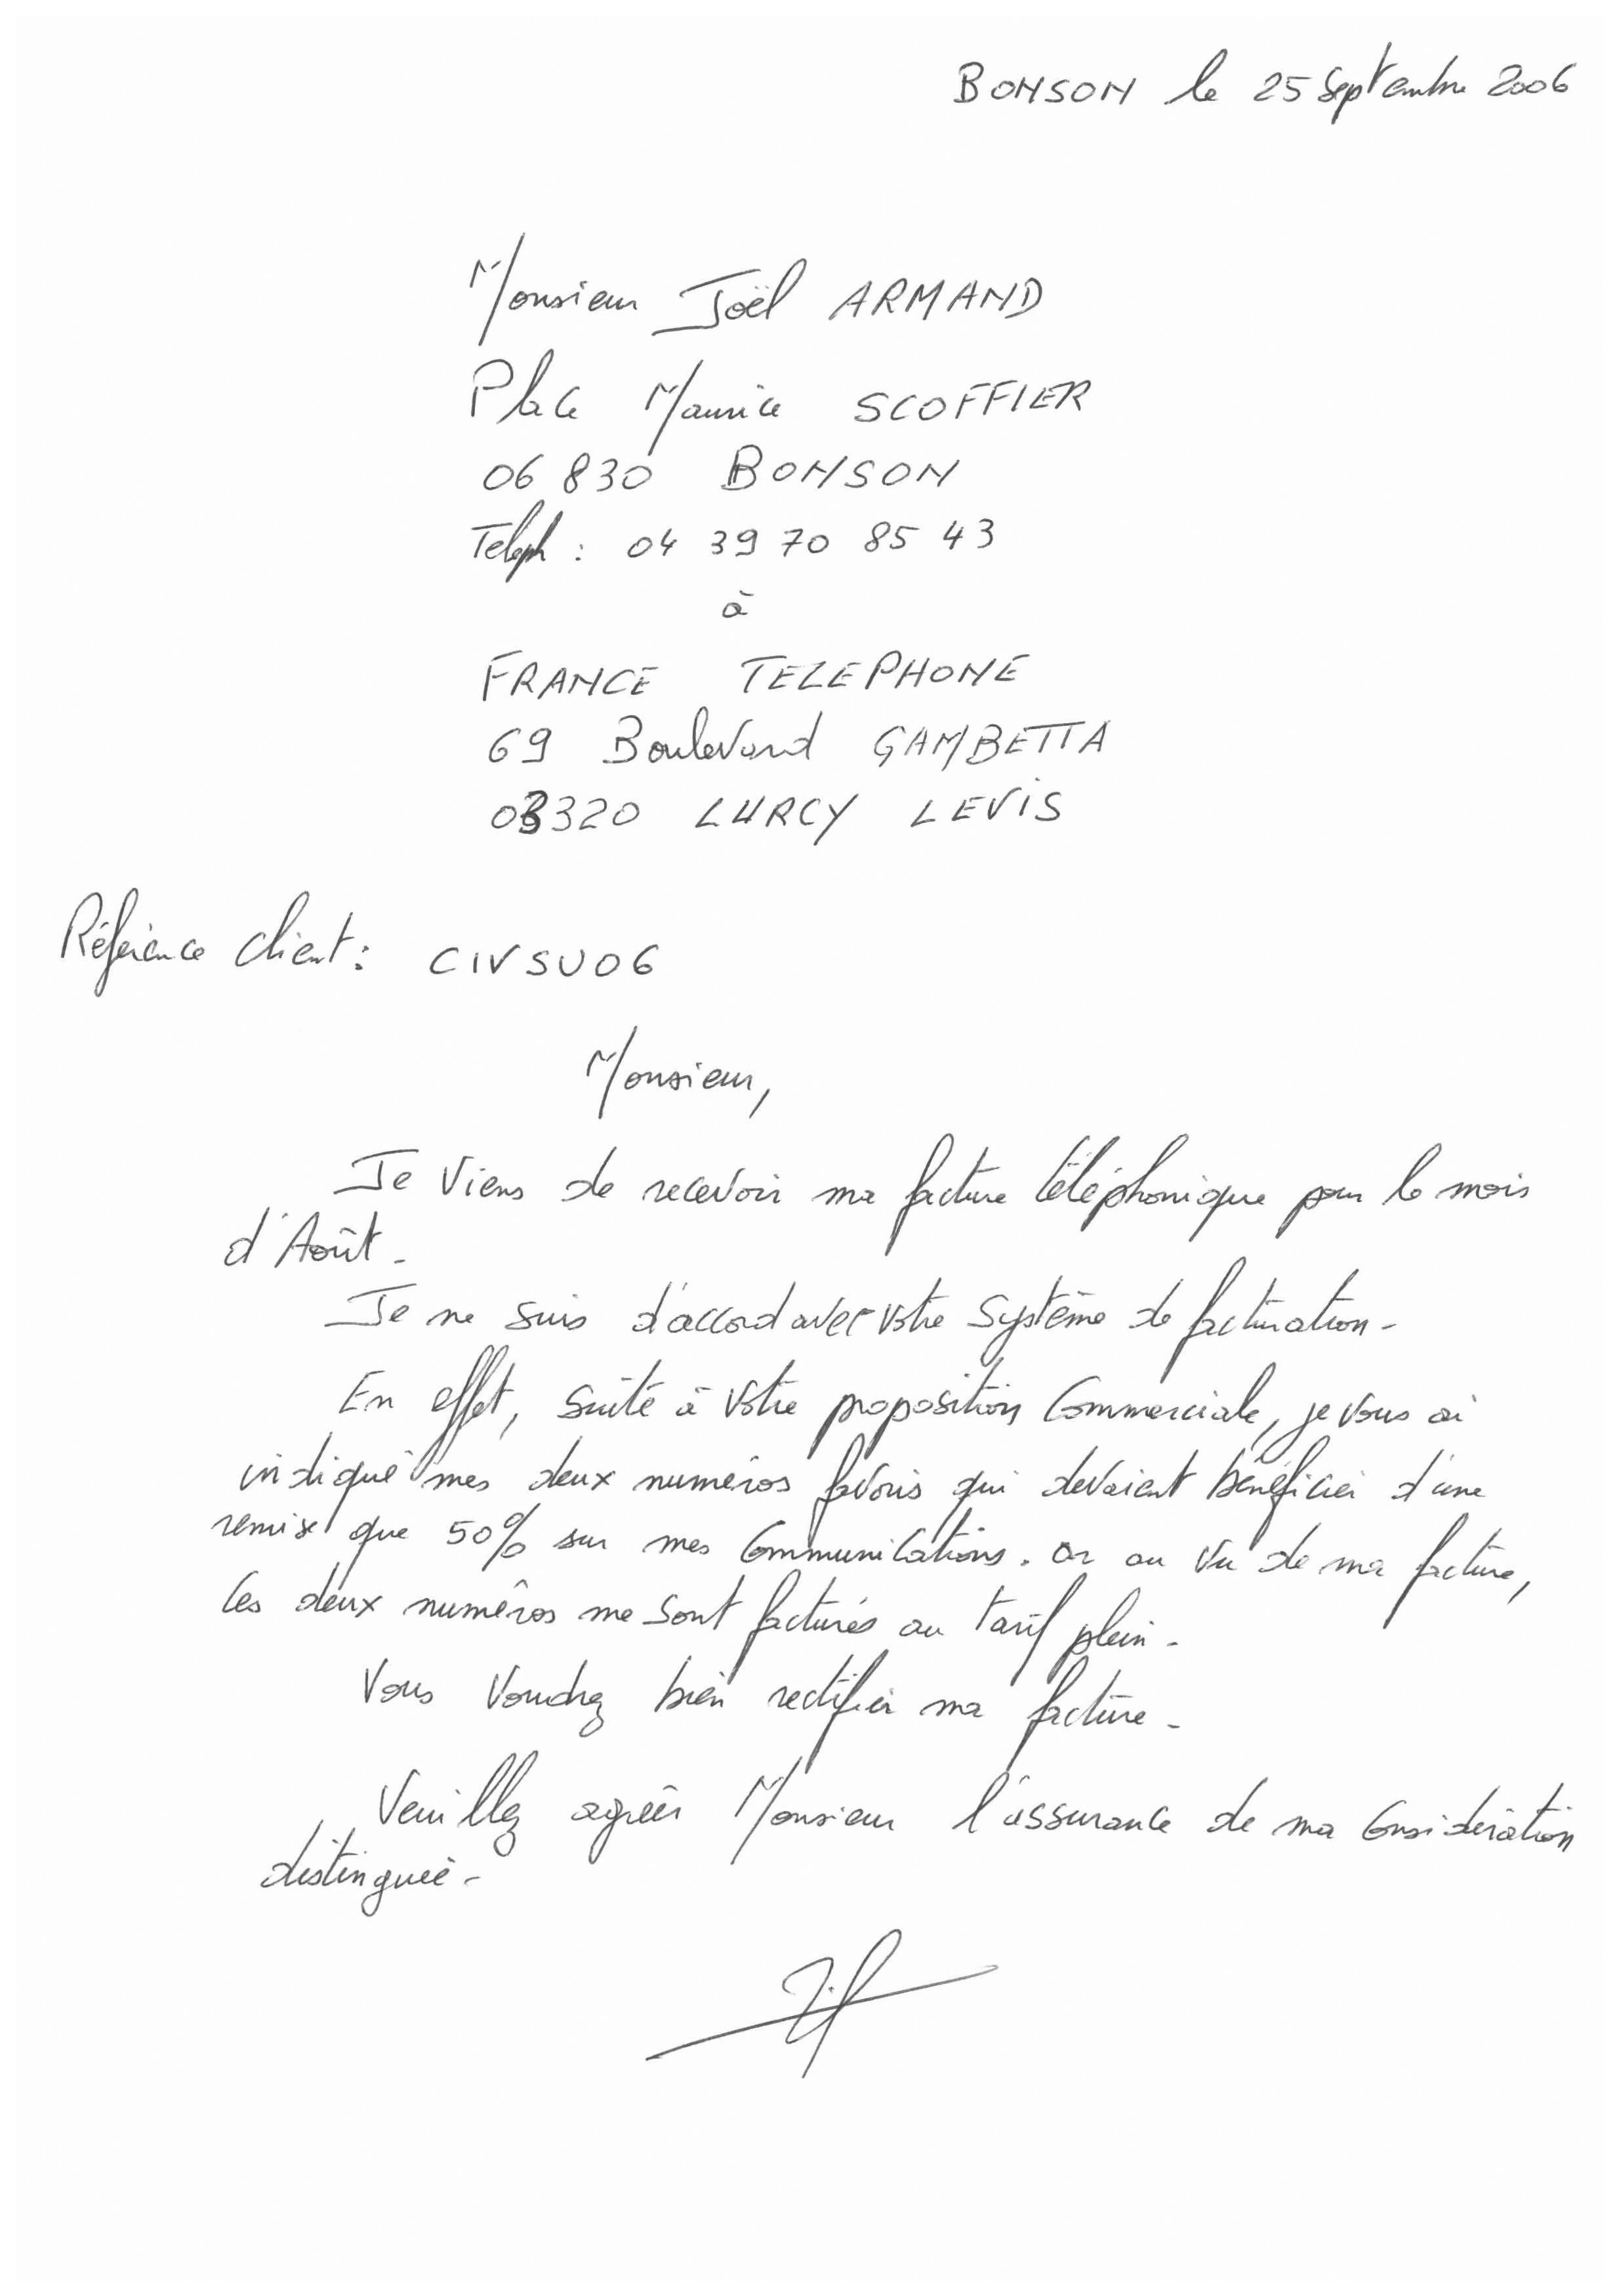 BONSON le 25 Septembre 2006
Monsieur Joël ARMAND
Place Maurice SCOFFIER
06 830 BONSON
Teleph : 04 39 70 85 43
à
FRANCE TELEPHONE
69 Boulevard GAMBETTA
03320 LURCY LEVIS
Référence client : CIVSU06
Monsieur,
Je viens de recevoir ma facture téléphonique pour le mois
d'Août.
Je ne suis d'accord avec votre système de facturation.
En effet, suite à votre proposition commerciale, je vous ai
indiqué mes deux numéros favoris qui devaient bénéficier d'une
remise que 50% sur mes communications. Or au vu de ma facture,
ces deux numéros me sont facturés au tarif plein.
Vous voudrez bien rectifier ma facture.
Veuillez agréer Monsieur l'assurance de ma considération
distinguée.